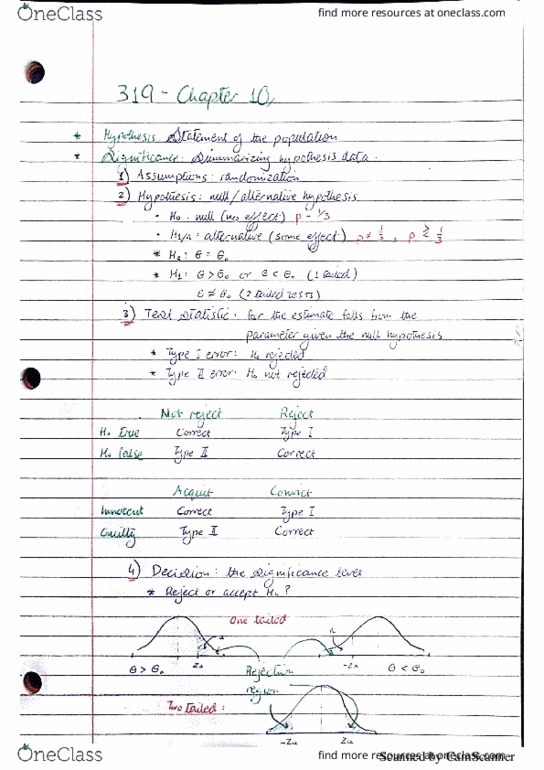 OneClass
find more resources at oneclass.com
319 - Chapter 10
* Hypothesis Statement of the population
* Significance: Summarizing hypothesis data.
1) Assumptions: randomization
2) Hypothesis: null/alternative hypothesis
• H₀: null (no effect) p = 1/3
• H₁/a: alternative (some effect) p ≠ 1/3, p ≷ 1/3
* H₀: θ = θ₀
* H₁: θ > θ₀ or θ < θ₀ (1 tailed)
θ ≠ θ₀ (2 tailed tests)
3) Test Statistic: far the estimate falls from the
parameter given the null hypothesis
* Type I error: H₀ rejected
* Type II error: H₀ not rejected
Not reject Reject
H₀ true Correct Type I
H₀ false Type II Correct
Acquit Convict
Innocent Correct Type I
Guilty Type II Correct
4) Decision: the significance level
* Reject or accept H₀?
One tailed
θ > θ₀ Rejection θ < θ₀
region
Two tailed:
OneClass
find more resources at oneclass.com
Scanned by CamScanner